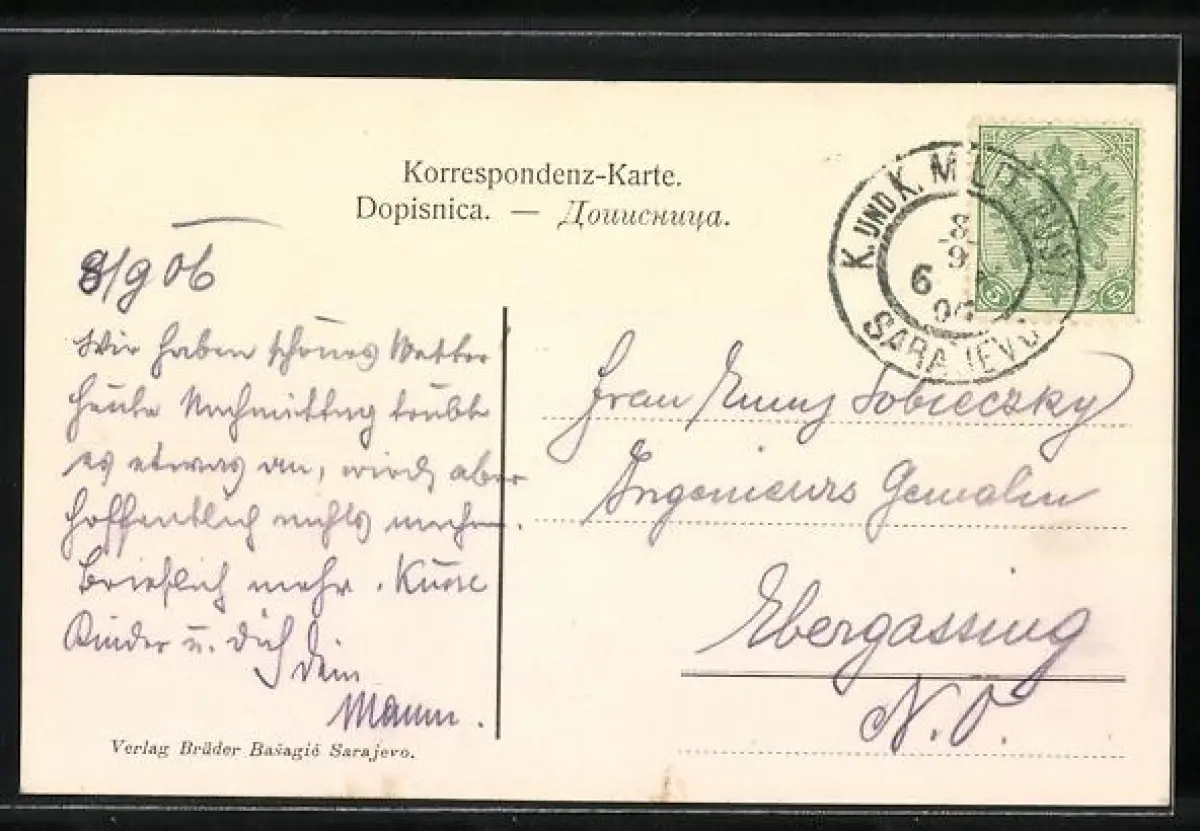 Korrespondenz-Karte.
Dopisnica. — Дописница.
K. UND K. MILIT. POST
SARAJEVO
8
9
6
06
5 5
8/9 06
Wir haben schönes Wetter
heute Nachmittag trübt
es etwas an, wird aber
hoffentlich nichts machen.
Brieflich mehr. Küsse
Kinder u. Dich Dein
Mann.
Frau Emmy Sobieczky
Ingenieurs Gemalin
Ebergassing
N. Ö.
Verlag Brüder Bašagić Sarajevo.